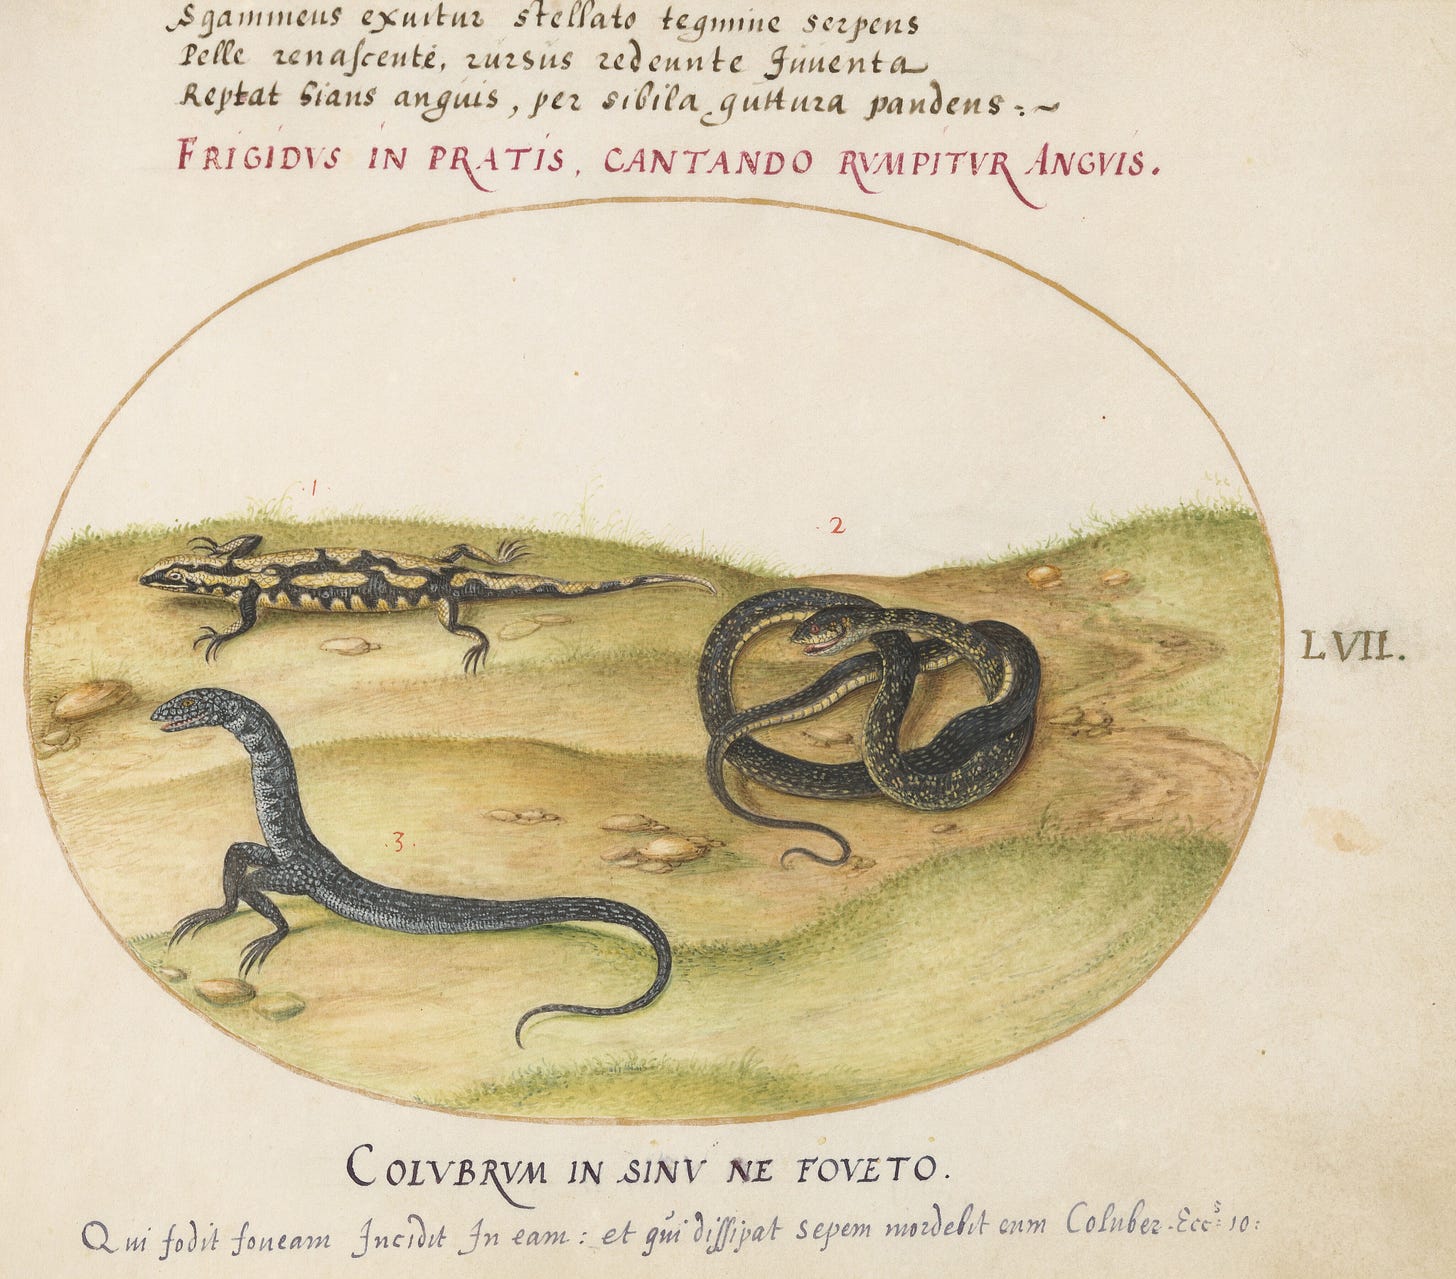 Sgammeus exuitur stellato tegmine serpens
Pelle renascente, rursus redeunte Iuuenta
Reptat hians anguis, per sibila guttura pandens :~
FRIGIDVS IN PRATIS, CANTANDO RVMPITVR ANGVIS.
1
2
LVII.
3.
COLVBRVM IN SINV NE FOVETO.
Qui fodit foueam Incidit In eam : et qui dissipat sepem mordebit eum Coluber. Eccs: 10: